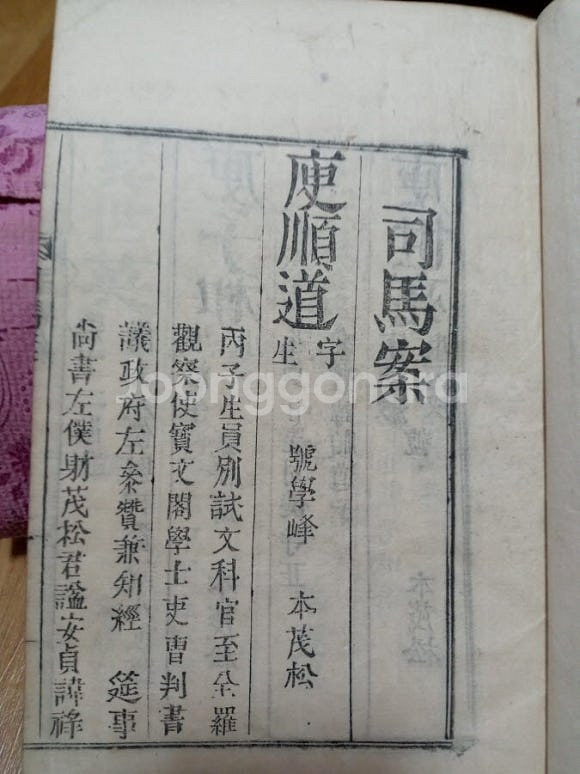 司馬案
庾順道 字 生 號學峰 本茂松
丙子生員別試文科官至全羅
觀察使寶文閣學士吏曹判書
議政府左叅贊兼知經 筵事
尙書左僕射茂松君謚安貞諱祿
Joonggonara